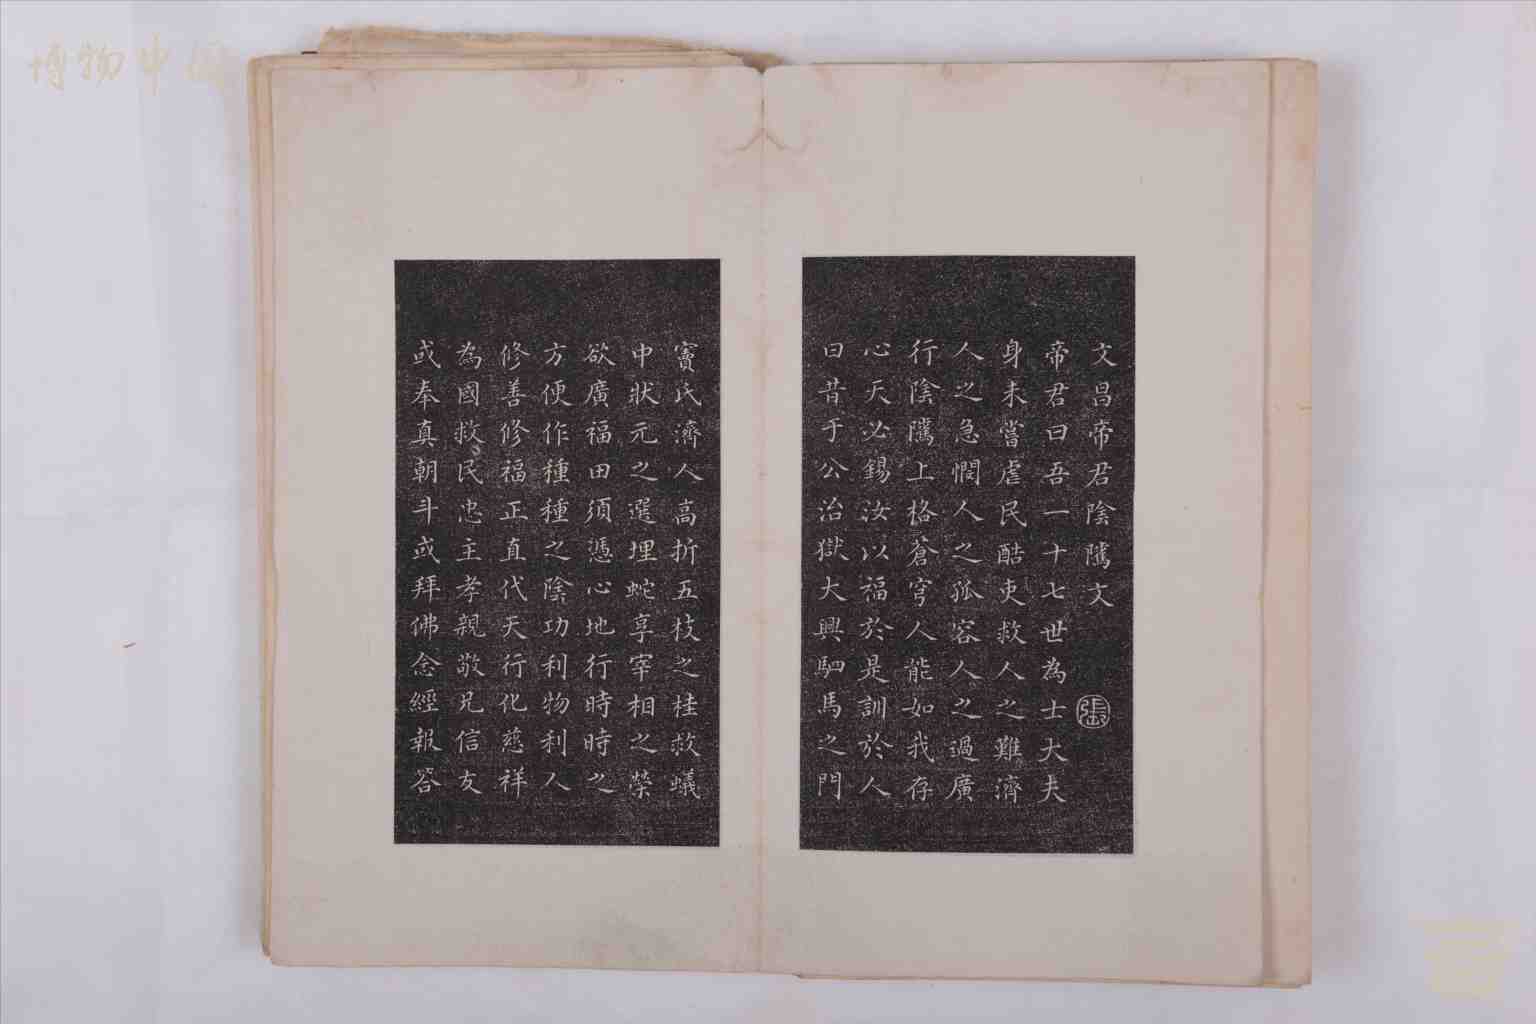 文昌帝君陰隲文
張
帝君曰吾一十七世為士大夫
身未嘗虐民酷吏救人之難濟
人之急憫人之孤容人之過廣
行陰隲上格蒼穹人能如我存
心天必錫汝以福於是訓於人
曰昔于公治獄大興駟馬之門
竇氏濟人高折五枝之桂救蟻
中狀元之選埋蛇享宰相之榮
欲廣福田須憑心地行時時之
方便作種種之陰功利物利人
修善修福正直代天行化慈祥
為國救民忠主孝親敬兄信友
或奉真朝斗或拜佛念經報答
博物中國